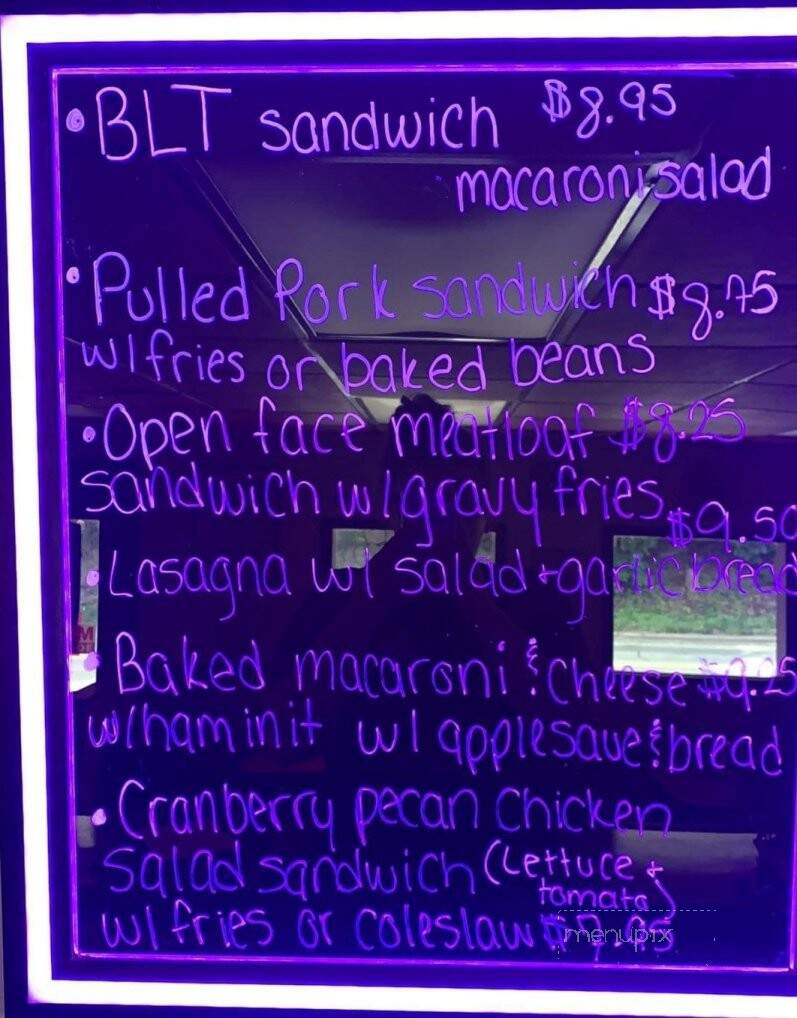 • BLT sandwich $8.95
macaroni salad
• Pulled Pork sandwich $8.75
w/fries or baked beans
• Open face meatloaf $8.25
sandwich w/gravy fries
$9.50
• Lasagna w/ salad + garlic bread
• Baked macaroni & cheese $9.25
w/ham in it w/ applesaue & bread
• Cranberry pecan chicken
salad sandwich (Lettuce +
tomato)
w/ fries or coleslaw
menupix